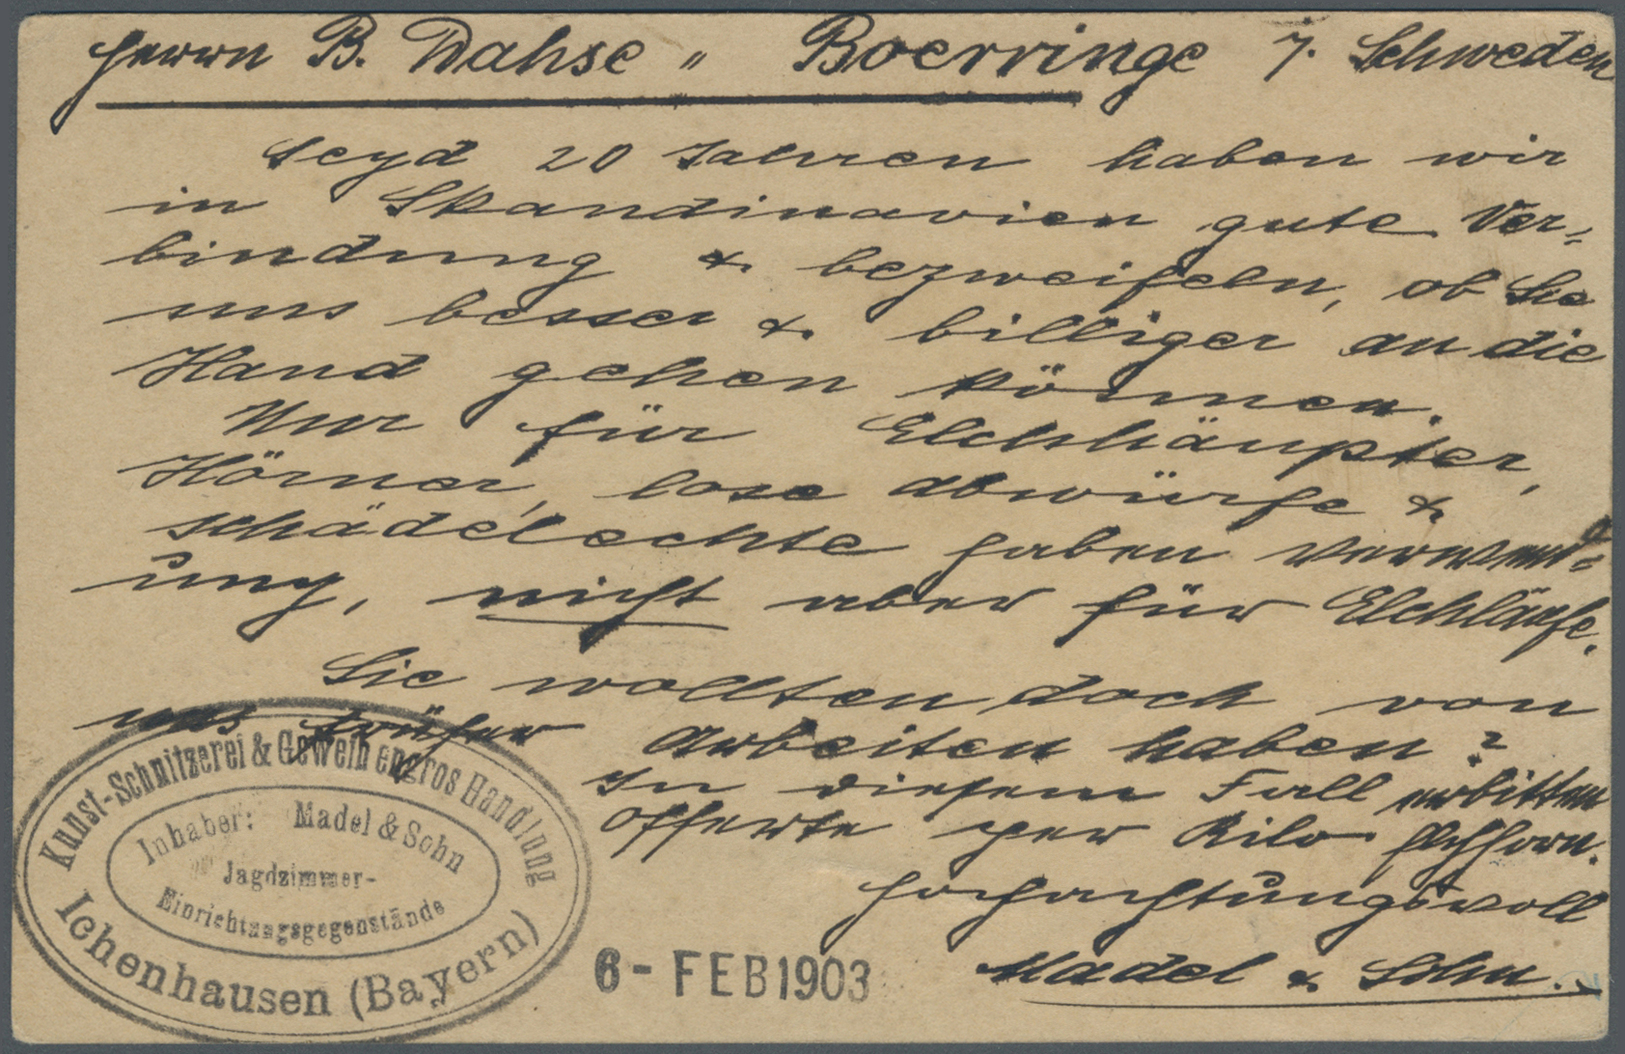 Herrn B. Dahse " Boerringe i. Schweden
Seyd 20 Jahren haben wir
in Skandinavien gute Ver-
bindung & bezweifeln, ob Sie
uns besser & billiger an die
Hand gehen können.
Nur für Elchhäupter,
Hörner, lose Abwürfe &
schädelechte haben Verwend-
ung, nicht aber für Elchläufe.
Sie wollten doch von
uns früher Arbeiten haben?
In diesem Fall erbitten
Offerte per Kilo
Hochachtungsvoll
Madel & Sohn.
6- FEB 1903
Kunst-Schnitzerei & Geweih engros Handlung
Inhaber: Madel & Sohn
Jagdzimmer-
Einrichtungsgegenstände
Ichenhausen (Bayern)